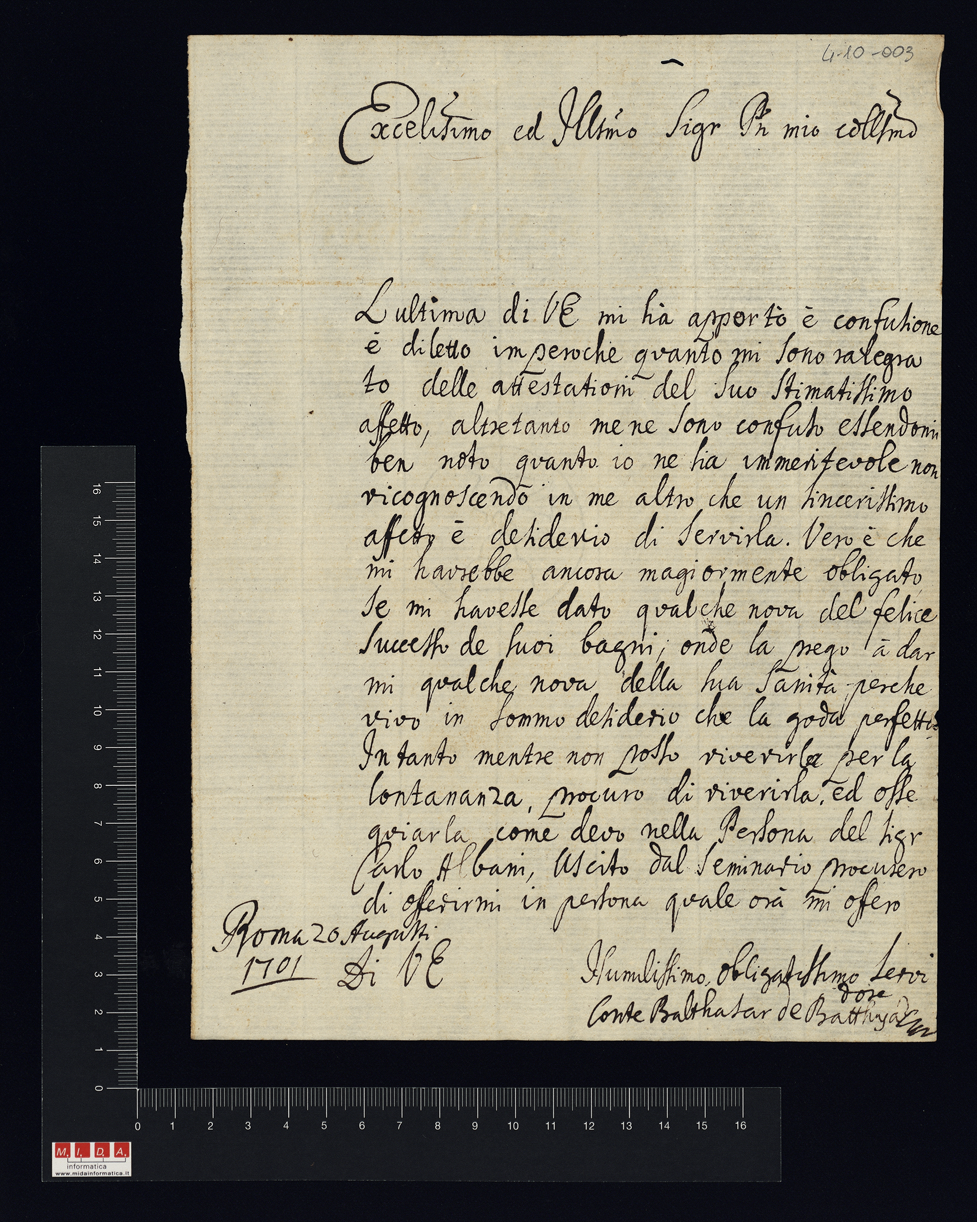 4-10-003
Excelissimo ed Illsmo Sigr Pn mio collsmo
L ultima di VE mi hà apportò è confusione
è diletto imperoche quanto mi sono ralegra
to delle attestationi del suo stimatissimo
affetto, altretanto me ne sono confuso essendomi
ben noto quanto io ne sia immeritevole non
ricognoscendo in me altro che un sincerissimo
affetto è desiderio di servirla. Vero è che
mi havrebbe ancora magiormente obligato
se mi havesse dato qualche nova del felice
successo de suoi bagni; onde la prego à dar
mi qualche nova della sua sanità perche
vivo in sommo desiderio che la goda perfetta
In tanto mentre non posso riverirla per la
lontananza, procuro di riverirla, ed osse
quiarla come devo nella Persona del sigr
Carlo Albani, Uscito dal Seminario procurero
di offerirmi in persona quale orà mi offero
Roma 20 Augusti
1701
Di VE
Humilissimo, obligatissimo servi
dore
Conte Balthasar de Batthyan
16
15
14
13
12
11
10
9
8
7
6
5
4
3
2
1
0
0 1 2 3 4 5 6 7 8 9 10 11 12 13 14 15 16
M. I. D. A.
informatica
www.midainformatica.it